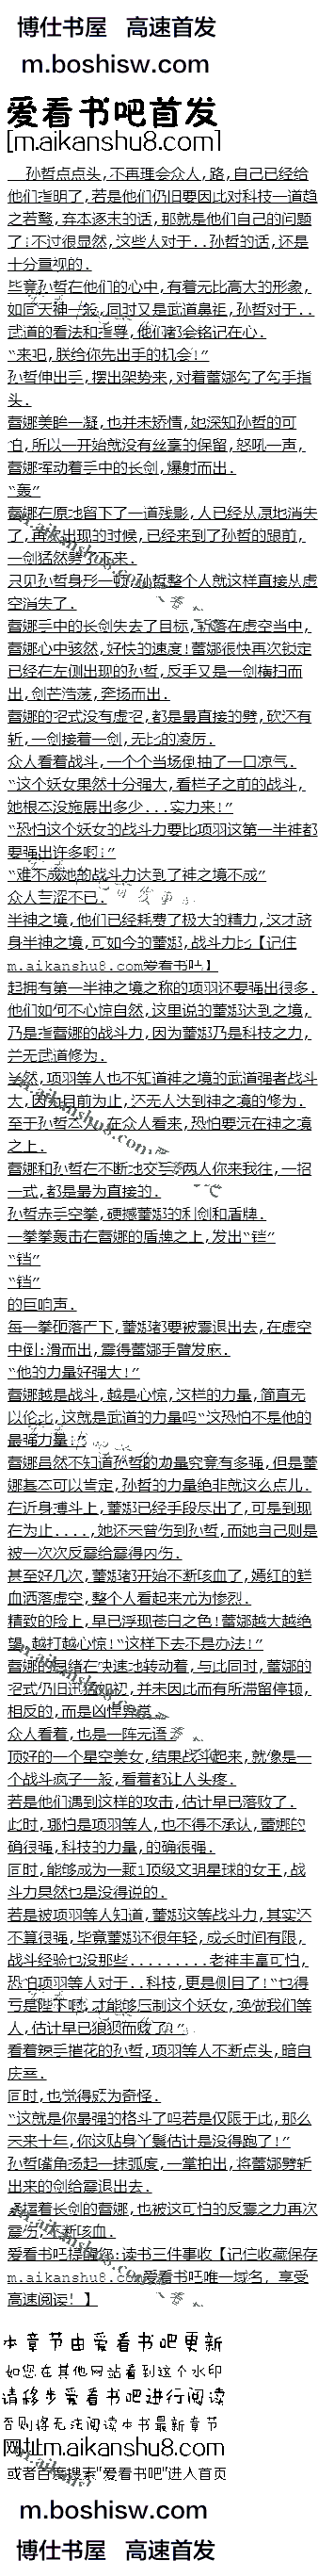 博仕书屋 高速首发
m.boshisw.com
爱看书吧首发
[m.aikanshu8.com]
孙哲点点头,不再理会众人,路,自己已经给
他们指明了,若是他们仍旧要因此对科技一道趋
之若鹜,弃本逐末的话,那就是他们自己的问题
了:不过很显然,这些人对于..孙哲的话,还是
十分重视的.
毕竟孙哲在他们的心中,有着无比高大的形象,
如同天神一般,同时又是武道鼻祖,孙哲对于..
武道的看法和指导,他们都会铭记在心.
“来吧,朕给你先出手的机会!”
孙哲伸出手,摆出架势来,对着蕾娜勾了勾手指
头.
蕾娜美眸一凝,也并未矫情,她深知孙哲的可
怕,所以一开始就没有丝毫的保留,怒吼一声,
蕾娜挥动着手中的长剑,爆射而出.
“轰”
蕾娜在原地留下了一道残影,人已经从原地消失
了,再次出现的时候,已经来到了孙哲的跟前,
一剑猛然劈了下来.
只见孙哲身形一顿,孙哲整个人就这样直接从虚
空消失了.
蕾娜手中的长剑失去了目标,斩落在虚空当中,
蕾娜心中骇然,好快的速度!蕾娜很快再次锁定
已经在左侧出现的孙哲,反手又是一剑横扫而
出,剑芒浩荡,奔扬而出.
蕾娜的招式没有虚招,都是最直接的劈,砍还有
斩,一剑接着一剑,无比的凌厉.
众人看着战斗,一个个当场倒抽了一口凉气.
“这个妖女果然十分强大,看样子之前的战斗,
她根本没施展出多少...实力来!”
“恐怕这个妖女的战斗力要比项羽这第一半神都
要强出许多啊:”
“难不成她的战斗力达到了神之境不成”
众人苦涩不已.
半神之境,他们已经耗费了极大的精力,这才跻
身半神之境,可如今的蕾娜,战斗力比【记住
m.aikanshu8.com爱看书吧】
起拥有第一半神之境之称的项羽还要强出很多.
他们如何不心惊自然,这里说的蕾娜达到之境,
乃是指蕾娜的战斗力,因为蕾娜乃是科技之力,
并无武道修为.
当然,项羽等人也不知道神之境的武道强者战斗
大,因为目前为止,还无人达到神之境的修为.
至于孙哲本人,在众人看来,恐怕要远在神之境
之上.
蕾娜和孙哲在不断地交手,两人你来我往,一招
一式,都是最为直接的.
孙哲赤手空拳,硬撼蕾娜的利剑和盾牌.
一拳拳轰击在蕾娜的盾牌之上,发出“铛”
“铛”
“铛”
的巨响声.
每一拳砸落之下,蕾娜都要被震退出去,在虚空
中倒:滑而出,震得蕾娜手臂发麻.
“他的力量好强大!”
蕾娜越是战斗,越是心惊,这样的力量,简直无
以伦比,这就是武道的力量吗“这恐怕不是他的
最强力量:”
蕾娜虽然不知道孙哲的力量究竟有多强,但是蕾
娜基本可以肯定,孙哲的力量绝非就这么点儿.
在近身搏斗上,蕾娜已经手段尽出了,可是到现
在为止....,她还未曾伤到孙哲,而她自己则是
被一次次反震给震得内伤.
甚至好几次,蕾娜都开始不断咳血了,嫣红的鲜
血洒落虚空,整个人看起来尤为惨烈.
精致的脸上,早已浮现苍白之色!蕾娜越大越绝
望,越打越心惊!“这样下去不是办法!”
蕾娜的思绪在快速地转动着,与此同时,蕾娜的
招式仍旧迅猛凌切,并未因此而有所滞留停顿,
相反的,而是凶悍异常.
众人看着,也是一阵无语.
顶好的一个星空美女,结果战斗起来,就像是一
个战斗疯子一般,看着都让人头疼.
若是他们遇到这样的攻击,估计早已落败了.
此时,哪怕是项羽等人,也不得不承认,蕾娜的
确很强,科技的力量,的确很强.
同时,能够成为一颗:顶级文明星球的女王,战
斗力果然也是没得说的.
若是被项羽等人知道,蕾娜这等战斗力,其实还
不算很强,毕竟蕾娜还很年轻,成长时间有限,
战斗经验也没那些.........老神丰富可怕,
恐怕项羽等人对于..科技,更是侧目了!“也得
亏是陛下啊,才能够压制这个妖女,换做我们等
人,估计早已狼狈而败了.”
看着辣手摧花的孙哲,项羽等人不断点头,暗自
庆幸.
同时,也觉得颇为奇怪.
“这就是你最强的格斗了吗若是仅限于此,那么
未来十年,你这贴身丫鬟估计是没得跑了!”
孙哲嘴角扬起一抹弧度,一掌拍出,将蕾娜劈斩
出来的剑给震退出去.
紧握着长剑的蕾娜,也被这可怕的反震之力再次
震伤,不断咳血.
爱看书吧提醒您:读书三件事收【记住收藏保存
m.aikanshu8.com爱看书吧唯一域名, 享受
高速阅读! 】
本章节由爱看书吧更新
如您在其他网站看到这个水印
请移步爱看书吧进行阅读
否则将无法阅读本书最新章节
网址m.aikanshu8.com
或者百度搜索"爱看书吧"进入首页
m.boshisw.com
博仕书屋 高速首发